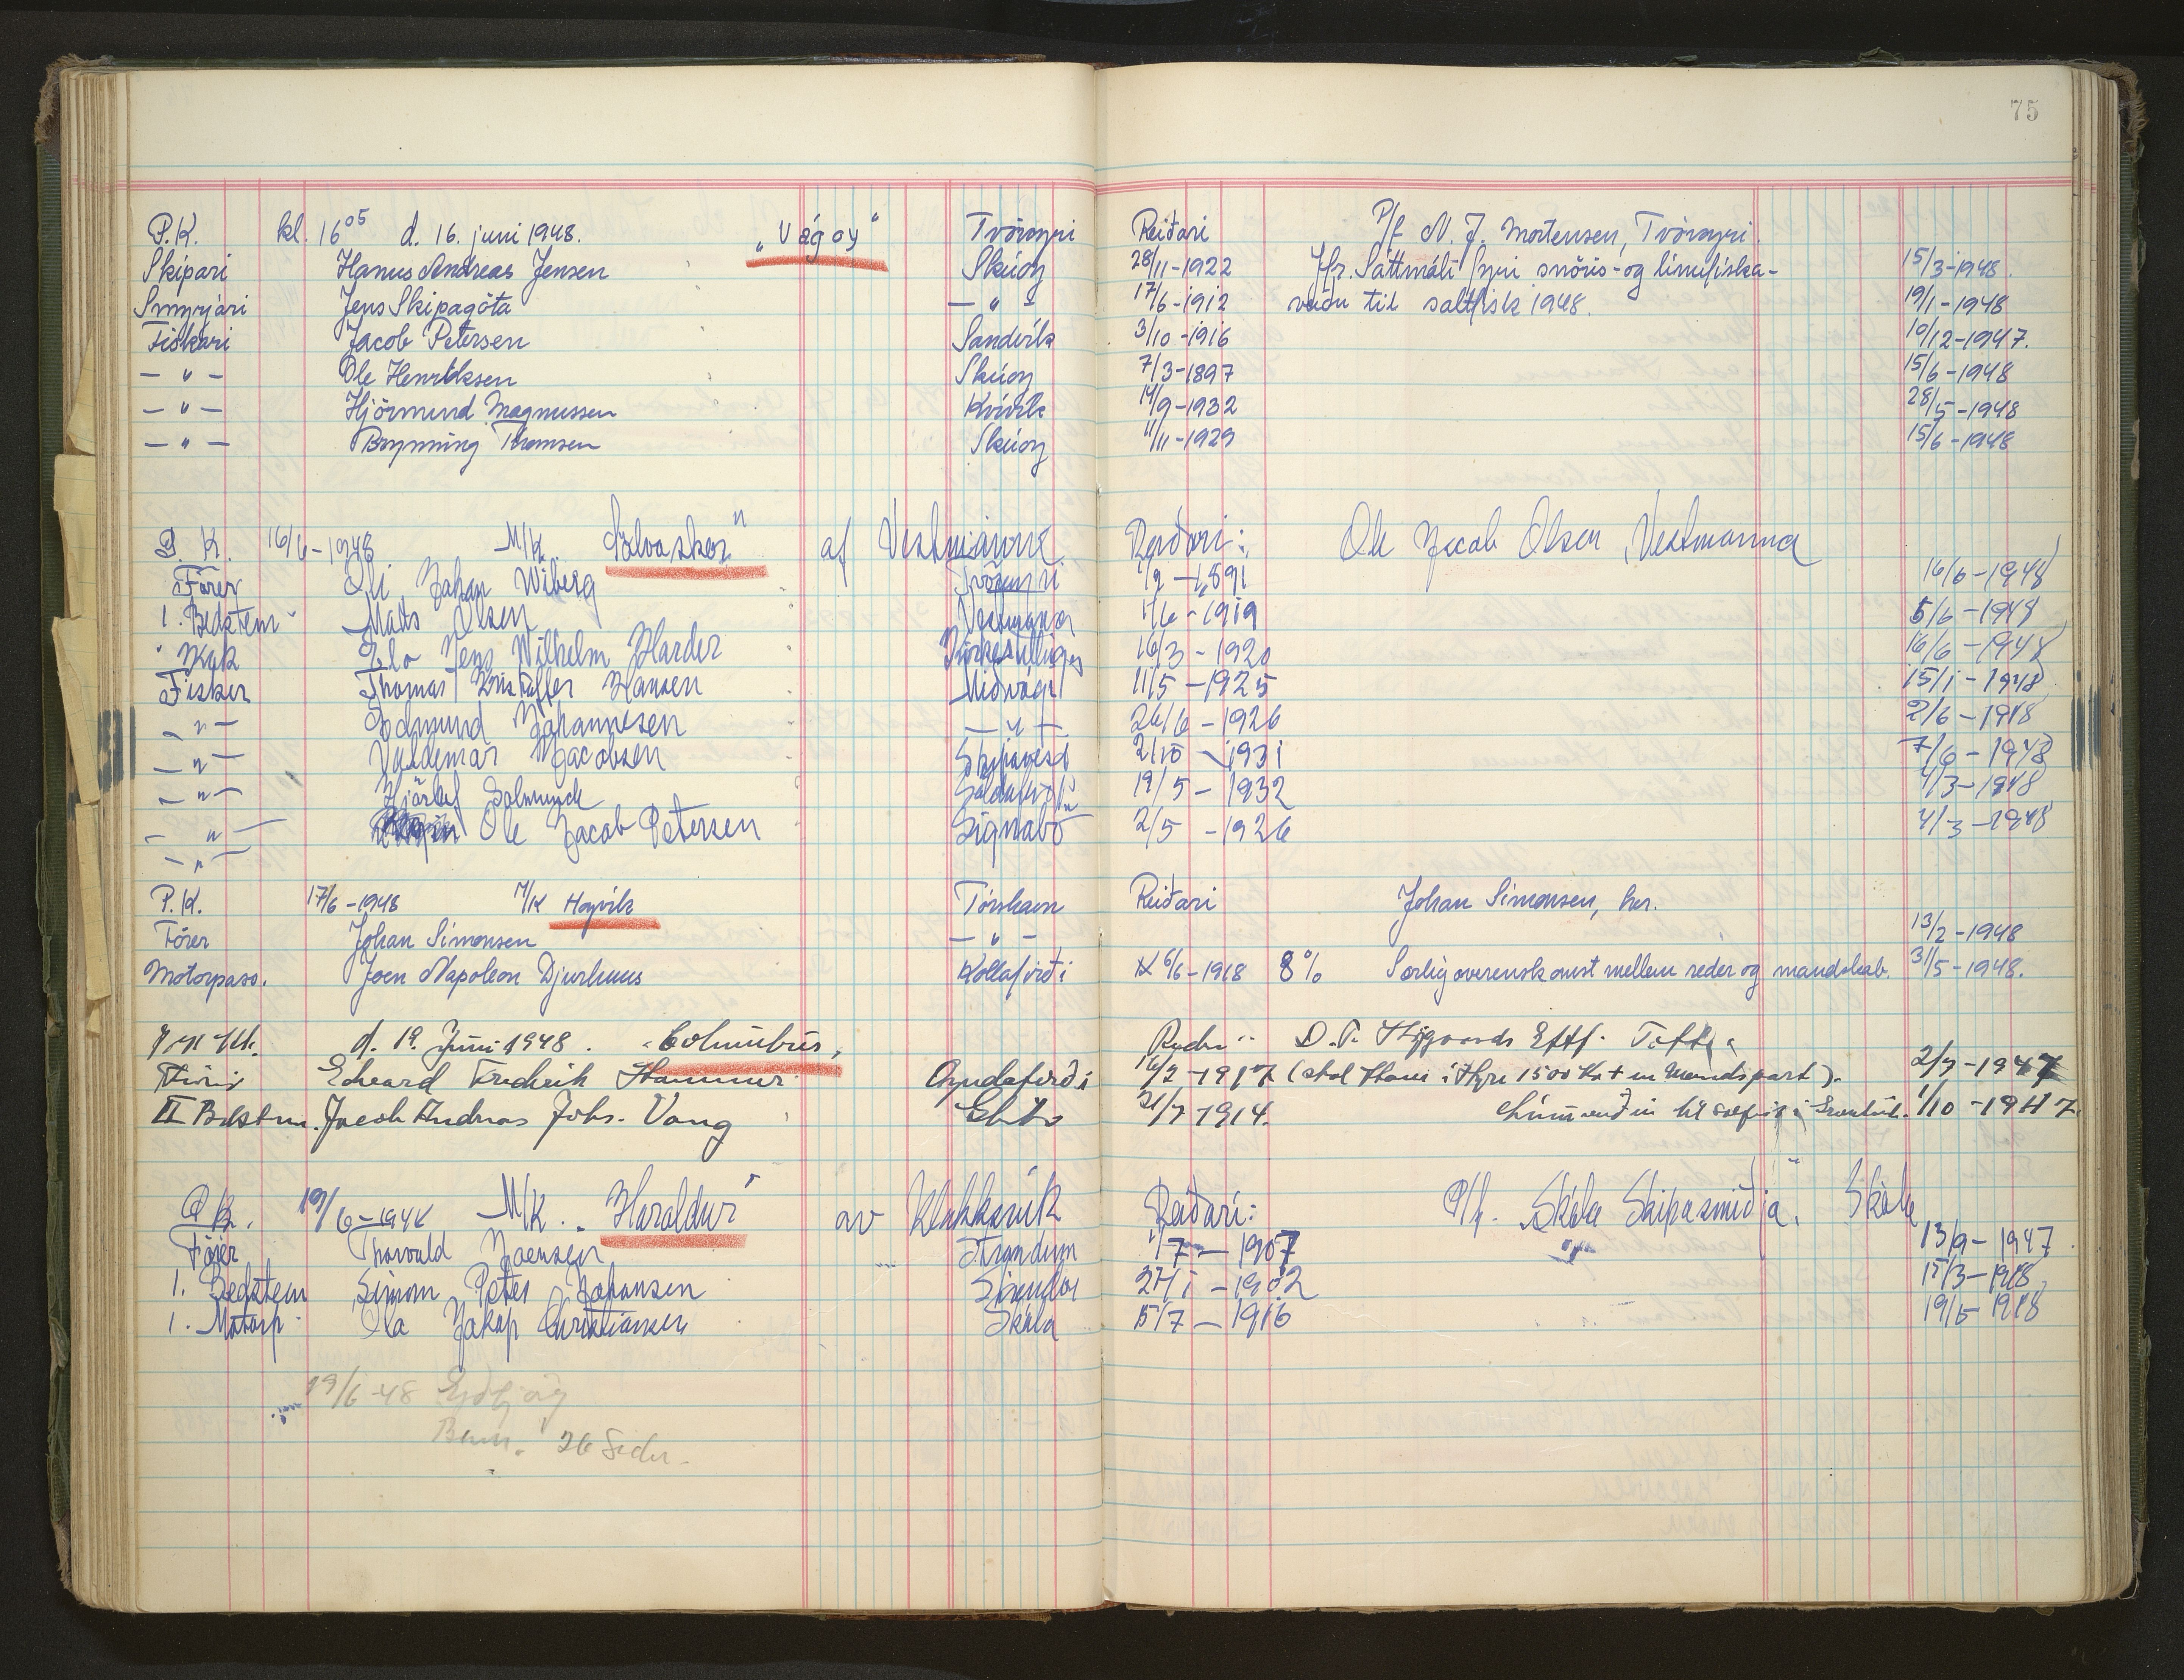 75
P.K. kl. 16⁰⁵ d. 16. juni 1948. „Vágoy“ Tvöroyri Reiðari P/f N. J. Mortensen, Tvöroyri.
Skipari Hanus Andreas Jensen Skúoy 28/11-1922 Jfr. Sáttmáli fyri snöris- og línufiska- 15/3-1948.
Smyrjari Jens Skipagöta — " — 17/6-1912 veiðu til saltfisk 1948. 19/1-1948
Fiskari Jacob Petersen Sandvík 3/10-1916 10/12-1947.
— " — Ole Henriksen Skúoy 7/3-1897 15/6-1948
— " — Hjörmund Magnussen Kvívík 14/9-1932 28/5-1948
— " — Brynning Thomsen Skúoy 11/11-1929 15/6-1948
P. K. 16/6-1948 M/K „Sölvasker“ af Vestmanna Reiðari: Ole Jacob Olsen, Vestmanna
Förer Oli Johan Wiberg Tvöroyri 1/2-1891 16/6-1948
1. Bedstem Mads Olsen Vestmanna 1/6-1919 5/6-1948
Kok Jens Wilhelm Harder 16/3-1920 16/6-1948
Fisker Thomas Kristoffer Hansen Miðvági 11/5-1925 15/1-1948
— " — Edmund Johannesen — " — 26/6-1926 2/6-1948
— " — Valdemar Jacobsen 2/10-1931 7/6-1948
— " — Hjörlef Solmunde Saldarfirði 19/5-1932 4/3-1948
— " — Ole Jacob Petersen Signabö 2/5-1926 4/3-1948
— " —
P.K. 17/6-1948 M/K Hoyvík Tórshavn Reiðari Johan Simonsen, her.
Förer Johan Simonsen — " — 13/2-1948
Motorpass. Joen Napoleon Djurhuus Kollafirði 6/6-1918 8% Særlig overenskomst mellem reder og mandskab. 31/5-1948.
d. 19. Juni 1948. „Columbus“ Reder D. P. Højgaards Eftf. Tofte
Edvard Fredrik Hammer Oyndafirði 16/2-1917 (skal have i Hyre 1500 Kr + en Mandspart). 2/7-1947
II Bedstm. Jacob Andreas Johs. Vang 21/7-1914. 1/10-1947.
P.K. 19/6-1948 M/K. „Haraldur“ av Klakksvík Reiðari: P/f. „Skála Skipasmiðja“. Skála
Förer Thorvald Joensen Strendum 1/7-1907 13/9-1947
1. Bedstem Simon Peter Johansen 27/1-1902 15/3-1948
1. Motorp. Ola Jákup Christiansen Skála 5/7-1916 19/5-1948
19/6-48
26 Sider.